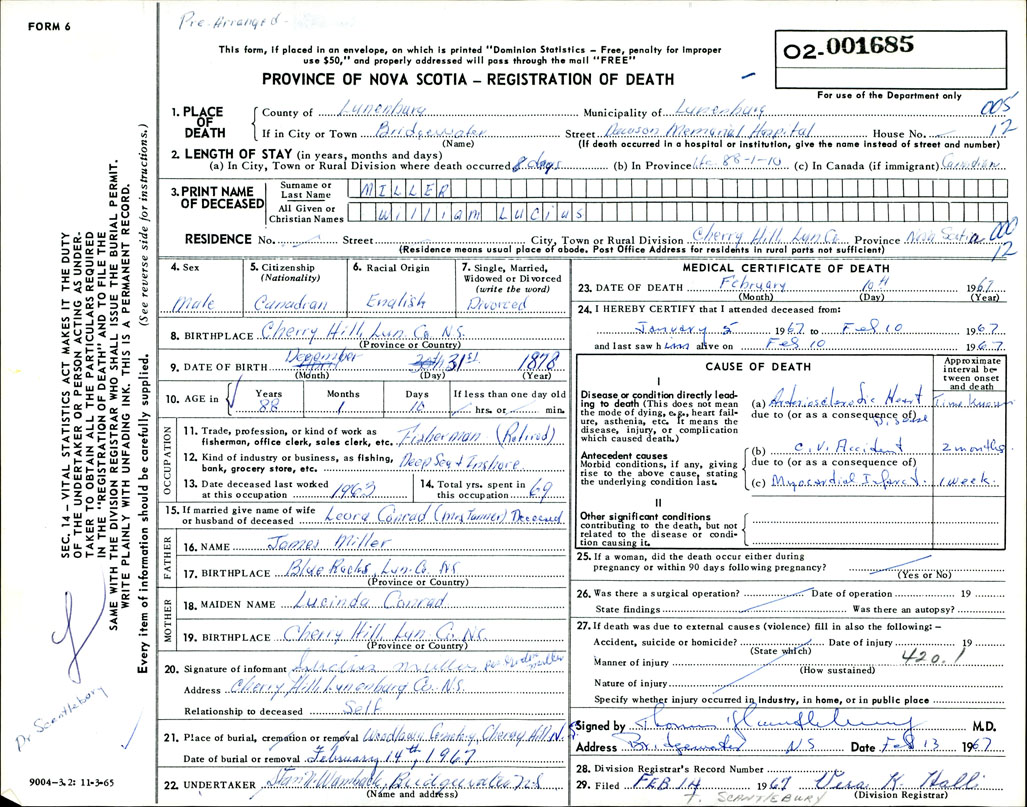 FORM 6
Pre-Arranged -
This form, if placed in an envelope, on which is printed "Dominion Statistics – Free, penalty for improper
use $50," and properly addressed will pass through the mail "FREE"
PROVINCE OF NOVA SCOTIA – REGISTRATION OF DEATH
02-001685
For use of the Department only
005
12
1. PLACE OF DEATH
County of Lunenburg Municipality of Lunenburg
If in City or Town Bridgewater Street Dawson Memorial Hospital House No.
(Name) (If death occurred in a hospital or institution, give the name instead of street and number)
2. LENGTH OF STAY (in years, months and days)
(a) In City, Town or Rural Division where death occurred 8 days (b) In Province Life 88-1-10 (c) In Canada (if immigrant) Canadian
3. PRINT NAME OF DECEASED
Surname or Last Name MILLER
All Given or Christian Names William Lucius
RESIDENCE No. Street City, Town or Rural Division Cherry Hill, Lun Co. Province Nova Scotia 000
12
(Residence means usual place of abode. Post Office Address for residents in rural parts not sufficient)
4. Sex
Male
5. Citizenship (Nationality)
Canadian
6. Racial Origin
English
7. Single, Married, Widowed or Divorced (write the word)
Divorced
8. BIRTHPLACE Cherry Hill, Lun. Co. N.S.
(Province or Country)
9. DATE OF BIRTH December 31st 1878
(Month) (Day) (Year)
10. AGE in Years Months Days If less than one day old
88 1 10 hrs. or min.
OCCUPATION
11. Trade, profession, or kind of work as fisherman, office clerk, sales clerk, etc. Fisherman (Retired)
12. Kind of industry or business, as fishing, bank, grocery store, etc. Deep Sea & Inshore
13. Date deceased last worked at this occupation 1963
14. Total yrs. spent in this occupation 69
15. If married give name of wife or husband of deceased Leora Conrad (Mrs Tanner) Deceased
FATHER
16. NAME James Miller
17. BIRTHPLACE Blue Rocks, Lun. Co. NS
(Province or Country)
MOTHER
18. MAIDEN NAME Lucinda Conrad
19. BIRTHPLACE Cherry Hill, Lun Co. N.S.
(Province or Country)
20. Signature of informant Lucius Miller
Address Cherry Hill, Lunenburg Co. N.S.
Relationship to deceased Self
21. Place of burial, cremation or removal Woodlawn Cemetery, Cherry Hill N.S.
Date of burial or removal February 14th, 1967
22. UNDERTAKER Bridgewater NS
(Name and address)
MEDICAL CERTIFICATE OF DEATH
23. DATE OF DEATH February 10th 1967
(Month) (Day) (Year)
24. I HEREBY CERTIFY that I attended deceased from:
January 5 1967 to Feb 10 1967
and last saw him alive on Feb 10 1967
CAUSE OF DEATH
Approximate interval between onset and death
I
Disease or condition directly leading to death (This does not mean the mode of dying, e.g., heart failure, asthenia, etc. It means the disease, injury, or complication which caused death.)
(a) Arteriosclerotic Heart Disease
due to (or as a consequence of)
Antecedent causes
Morbid conditions, if any, giving rise to the above cause, stating the underlying condition last.
(b) C.V. Accident 2 months
due to (or as a consequence of)
(c) Myocardial Infarct 1 week.
II
Other significant conditions
contributing to the death, but not related to the disease or condition causing it.
25. If a woman, did the death occur either during pregnancy or within 90 days following pregnancy?
(Yes or No)
26. Was there a surgical operation? Date of operation 19
State findings Was there an autopsy?
27. If death was due to external causes (violence) fill in also the following: –
Accident, suicide or homicide? Date of injury 19
(State which) 420.1
Manner of injury
(How sustained)
Nature of injury
Specify whether injury occurred in industry, in home, or in public place
Signed by Thomas Scantlebury M.D.
Address Bridgewater NS Date Feb 13 1967
28. Division Registrar's Record Number
29. Filed FEB 14 1967 Vera K. Hall
(Division Registrar)
T. SCANTLEBURY
SEC. 14 – VITAL STATISTICS ACT MAKES IT THE DUTY
OF THE UNDERTAKER OR PERSON ACTING AS UNDER-
TAKER TO OBTAIN ALL THE PARTICULARS REQUIRED
IN THE "REGISTRATION OF DEATH" AND TO FILE THE
SAME WITH THE DIVISION REGISTRAR WHO SHALL ISSUE THE BURIAL PERMIT.
WRITE PLAINLY WITH UNFADING INK. THIS IS A PERMANENT RECORD.
Every item of information should be carefully supplied. (See reverse side for instructions.)
Dr Scantlebury
9004-3.2: 11-3-65